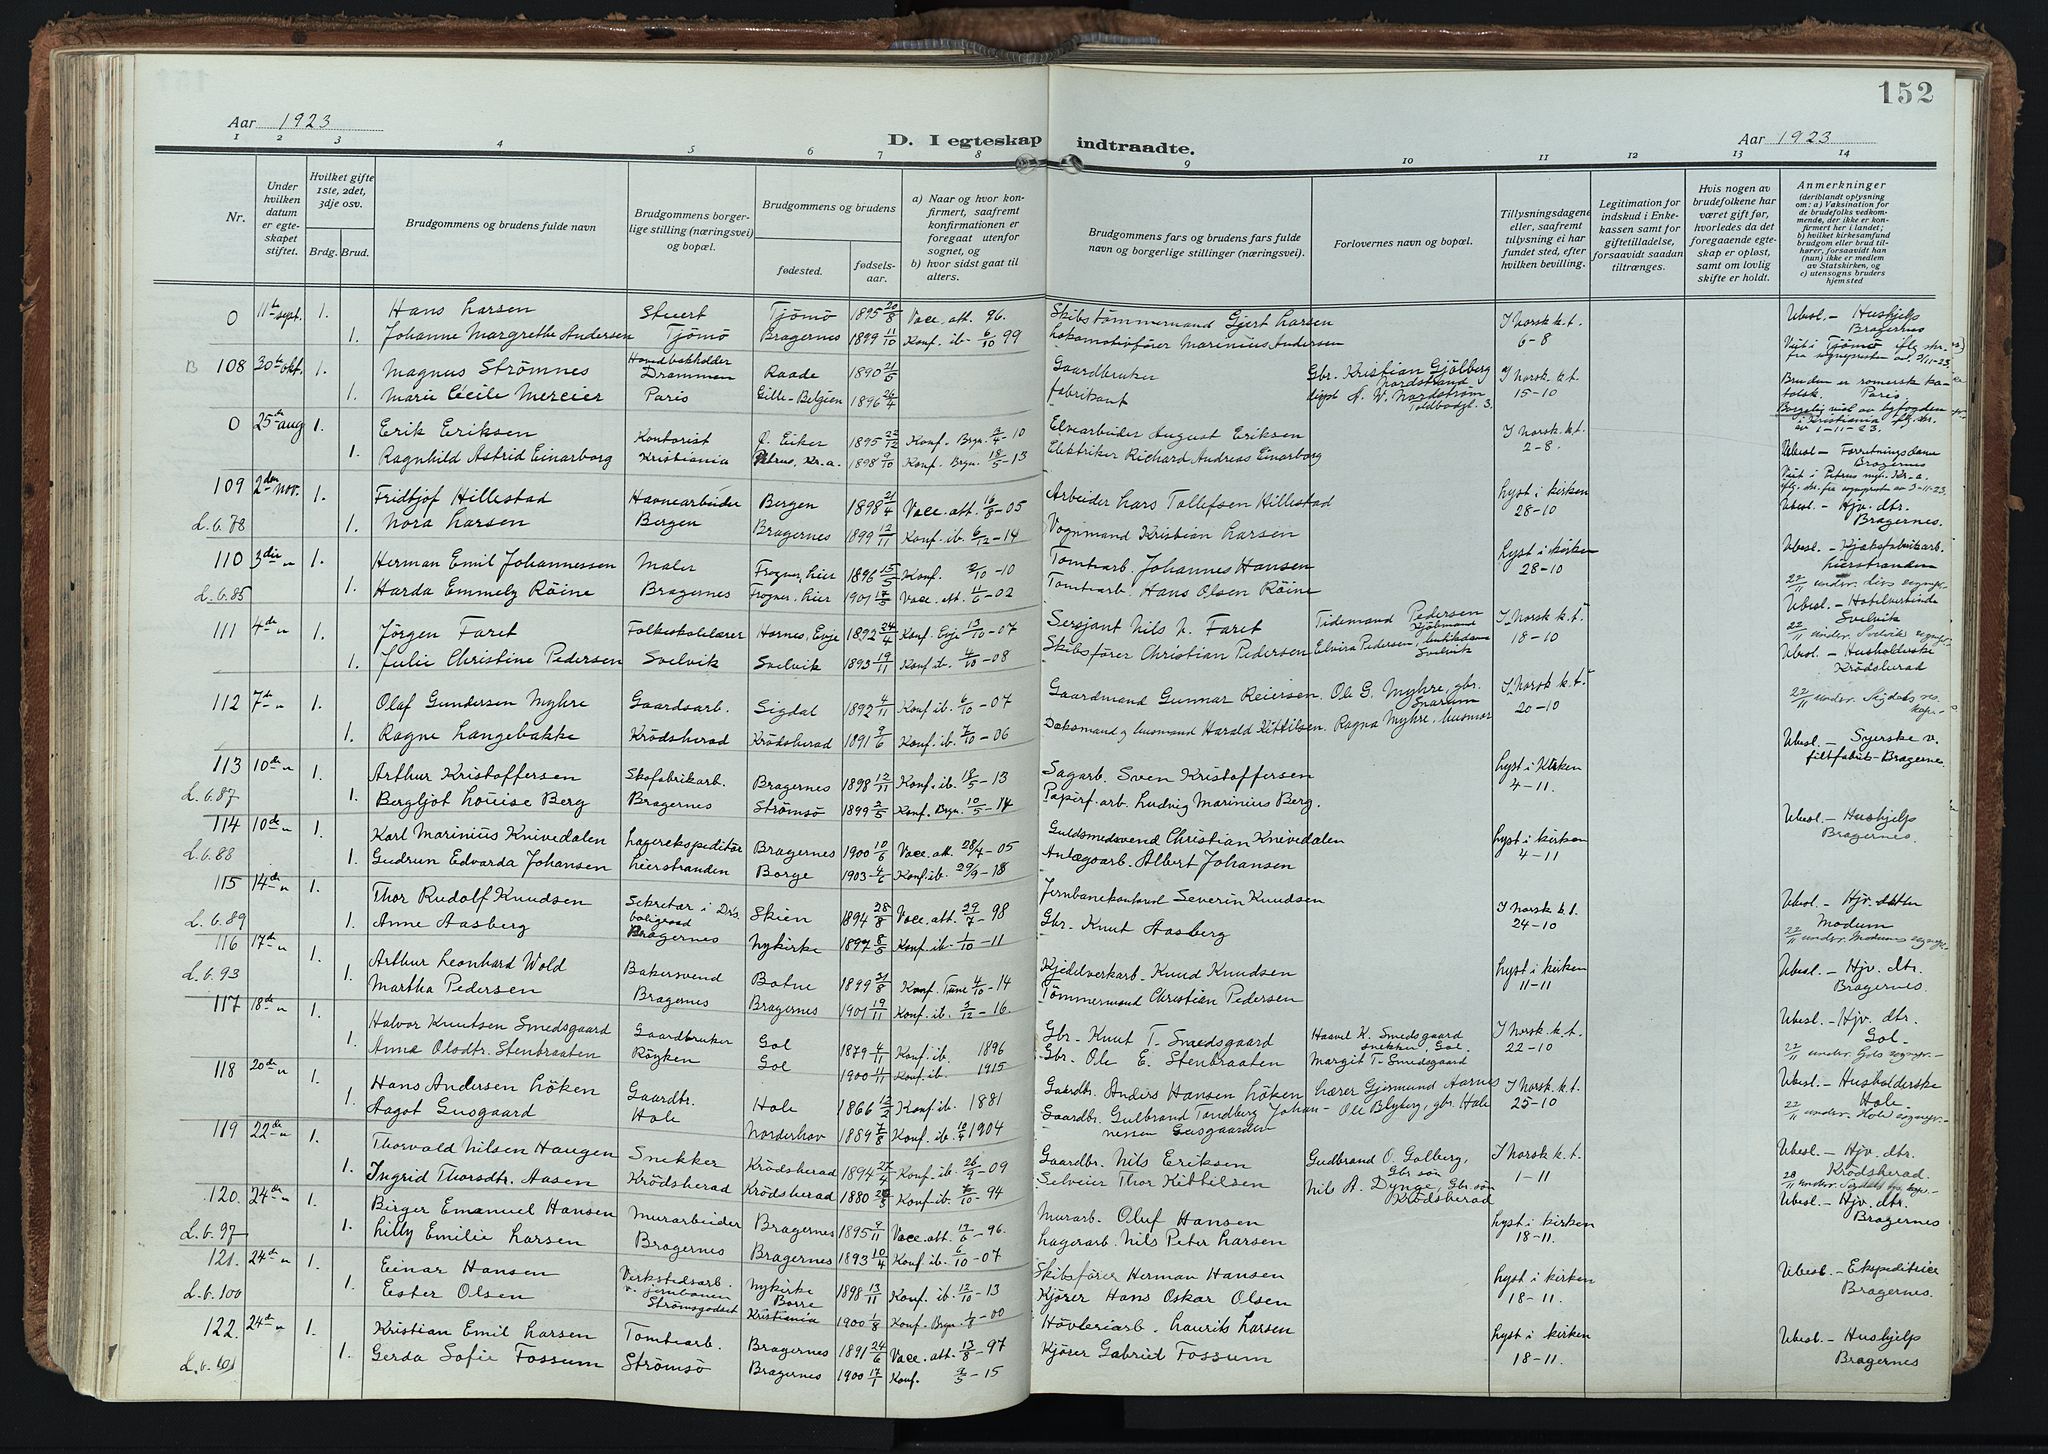 152
Aar 1923
D. I egteskap indtraadte.
Aar 1923
1 2 3 4 5 6 7 8 9 10 11 12 13 14
Nr.
Under hvilken datum er egteskapet stiftet.
Hvilket gifte 1ste, 2det, 3dje osv.
Brdg. Brud.
Brudgommens og brudens fulde navn
Brudgommens borgerlige stilling (næringsvei) og bopæl.
Brudgommens og brudens
fødested.
fødselsaar.
a) Naar og hvor konfirmert, saafremt konfirmationen er foregaat utenfor sognet, og
b) hvor sidst gaat til alters.
Brudgommens fars og brudens fars fulde navn og borgerlige stillinger (næringsvei).
Forlovernes navn og bopæl.
Tillysningsdagene eller, saafremt tillysning ei har fundet sted, efter hvilken bevilling.
Legitimation for indskud i Enkekassen samt for giftetilladelse, forsaavidt saadan tiltrænges.
Hvis nogen av brudefolkene har været gift før, hvorledes da det foregaaende egteskap er opløst, samt om lovlig skifte er holdt.
Anmerkninger (deriblandt oplysning om: a) Vaksination for de brudefolks vedkommende, der ikke er konfirmert her i landet; b) hvilket kirkesamfund brudgom eller brud tilhører, forsaavidt han (hun) ikke er medlem av Statskirken, og c) utensogns bruders hjemsted
0 11te sept. 1. Hans Larsen Stuert Tjømø 1895 20/8 Vacc. att. 96. Skibstømmermand Gjert Larsen I Norsk k.t. Ubesl. - Hushjelp
1. Johanne Margrethe Andersen Tjømø Bragernes 1899 11/10 Konf. ib. 6/10 99 Lokomotivfører Marinius Andersen 6-8 Bragernes
Viet i Tjømø iflg. skr. fra sogneprest av 3/11-23.
B 108 30te okt. 1. Magnus Strømnes Hovedbokholder Drammen Raade 1890 21/6 Gaardbruker Gbr. Kristian Gjølberg Nordstrand I Norsk. k.t.
1. Marie Cécile Mercier Paris Gille-Belgien 1896 26/4 fabrikant A. W. Nordstrøm Toldbodgt. 3. 15-10
Bruden er romersk katolsk. Paris
Borgerlig viet av byfogden i Kristiania 1-11-23.
0 25de aug 1. Erik Eriksen Kontorist Ø. Eiker 1895 22/12 Konf. Bgn. 3/4-10 Elvearbeider August Eriksen I Norsk k.t.
1. Ragnhild Astrid Einarborg Kristiania Petrus, Kr.a. 1898 9/10 Konf. Bgn. 18/5-13 Elektriker Richard Andreas Einarborg 2-8.
Ubesl - Forretningsdame Bragernes
109 2den nov. 1. Fridtjof Hillestad Havnearbeider Bergen 1898 21/4 Vacc. att. 16/8-05 Arbeider Lars Tollefsen Hillestad Lyst i kirken
L.b. 78 1. Nora Larsen Bergen Bragernes 1899 12/11 Konf. ib. 6/12-14 Vognmand Kristian Larsen 28-10
Ubesl - Hjv. dtr. Bragernes.
110 3die " 1. Herman Emil Johannessen Maler Frogner, Lier 1896 15/5 Konf. 2/10-10 Tomtearb. Johannes Hansen Lyst i kirken
L.b. 85 1. Harda Emmely Röine Bragernes Frogner, Lier 1901 17/5 Vacc. att. 11/6-02 Tomtearb. Hans Olsen Röine 28-10
Lierstranden
111 4de " 1. Jörgen Faret Folkeskolelærer Hornes, Evje 1892 24/4 Konf. Evje 13/10-07 Sersjant Nils N. Faret Tidemand Pedersen I Norsk k.t.
1. Julie Christine Pedersen Svelvik Svelvik 1893 19/11 Konf. ib. 4/10-08 Skibsfører Christian Pedersen Elvira Pedersen Svelvik 18-10
Ubesl. - Hotelvertinde Svelvik
112 7de " 1. Olaf Gundersen Myhre Gaardsarb. Sigdal 1892 4/11 Konf. ib. 6/10-07 Gaardmand Gunnar Reiersen. Ole G. Myhre, gbr. Snarum I Norsk k.t.
1. Ragne Langebakke Krödsherad Krödsherad 1891 9/6 Konf. ib. 7/10-06 husmand Harald Kittilsen. Ragna Myhre, husmor 20-10
Ubesl. - Husholderske Krödsherad
113 10de " 1. Arthur Kristoffersen Skofabrikarb. Bragernes 1898 12/11 Konf. ib. 18/5-13 Sagarb. Sven Kristoffersen Lyst i Kirken
L.b. 87 1. Bergljot Louise Berg Bragernes Strømsø 1899 2/5 Konf. Bgn. 10/5-14 Papirf.arb. Ludvig Marinius Berg. 4-11.
Ubesl. - Syerske v. filtfabrik - Bragernes
114 10de " 1. Karl Marinius Knivedalen Lagerekspeditør Bragernes 1900 10/6 Vacc. att. 28/4-05 Guldsmedsvend Christian Knivedalen Lyst i kirken
L.b. 88 1. Gudrun Edvarda Johansen Lierstranden Borge 1903 4/6 Konf. ib. 29/9-18 Anlægsarb. Albert Johansen 4-11
Ubesl - Hushjelp Bragernes.
115 14de " 1. Thor Rudolf Knudsen Sekretær i Drs. boligraad Skien 1894 28/8 Vacc. att. 29/7-98 Jernbanekontorel Severin Knudsen I Norsk k.t.
L.b. 89 1. Anne Aasberg Bragernes Nykirke 1897 8/5 Konf. ib. 1/10-11 Gbr. Knut Aasberg 24-10
Ubesl - Hjv. datter Modum
116 17de " 1. Arthur Leonhard Wold Bakersvend Botne 1899 31/8 Konf. Tune 4/10-14 Kjedelverkarb. Knud Knudsen Lyst i kirken
L.b. 93 1. Martha Pedersen Bragernes Bragernes 1901 19/11 Konf. ib. 3/12-16. Tømmermand Christian Pedersen 11-11
Ubesl - Hjv. dtr. Bragernes
117 18de " 1. Halvor Knutsen Smedsgaard Gaardbruker Gol 1879 4/11 Konf. ib. 1896 Gbr. Knut T. Smedsgaard Haavel K. Smedsgaard snekker, Gol. I Norsk. k.t.
1. Anna Olsdtr. Stenbraaten Röyken Gol 1900 11/11 Konf. ib. 1915 Gbr. Ole E. Stenbraaten Margit T. Smedsgaard 22-10
Ubesl - Hjv. dtr. Gol.
118 20de " 1. Hans Andersen Löken Gaardbr. Hole 1866 12/2 Konf. ib. 1881 Gaardbr. Anders Hansen Löken Lærer Gjermund Aarnes I Norsk. k.t.
1. Aagot Gusgaard Hole Norderhov 1889 7/8 Konf. ib. 10/4 1904 Gaardbr. Gulbrand Tandberg Johannessen Gusgaarden Ole Blyberg, gbr. Hole 25-10
Ubesl. - Husholderske Hole
119 22de " 1. Thorvald Nilsen Haugen Snekker Krödsherad 1894 27/4 Konf. ib. 26/9-09 Gaardbr. Nils Eriksen Gudbrand O. Golberg, Gbr. søn I Norsk k.t.
1. Ingrid Thorsdtr. Aasen Krödsherad Krödsherad 1880 Konf ib. 7/10-94 Selveier Thor Kittilsen Nils A. Dynge, Gbr. søn Krödsherad 1-11
Ubesl - Hjv. dtr. Krödsherad.
120. 24de " 1. Birger Emanuel Hansen Murarbeider Bragernes 1895 9/11 Vacc. att. 17/6-96. Murarb. Oluf Hansen Lyst i kirken
L.b. 97 1. Lilly Emilie Larsen Bragernes Bragernes 1893 10/4 Konf. ib. 6/10-07 Lagerarb. Nils Peter Larsen 18-11.
Ubesl - Hjv. dtr. Bragernes
121. 24de " 1. Einar Hansen Verkstedsarb. v. Jernbanen Nykirke Borre 1898 13/11 Konf. ib. 12/10-13 Skibsfører Herman Hansen Lyst i kirken
L.b. 100 1. Ester Olsen Strømsgodset Kristiania 1900 1/8 Konf. Bgn. -00 Kjører Hans Oskar Olsen 18-11.
Ubesl. - Ekspeditrice Bragernes.
122. 24de " 1. Kristian Emil Larsen Tomtearb. Bragernes 1891 24/6 Vacc. att. 13/8-97 Høvleriarb. Laurits Larsen Lyst i kirken
L.b. 101 1. Gerda Sofie Fossum Strømsø Bragernes 1900 17/1 Konf. 9/5-15 Kjører Gabriel Fossum 18-11.
Ubesl - Hushjelp Bragernes